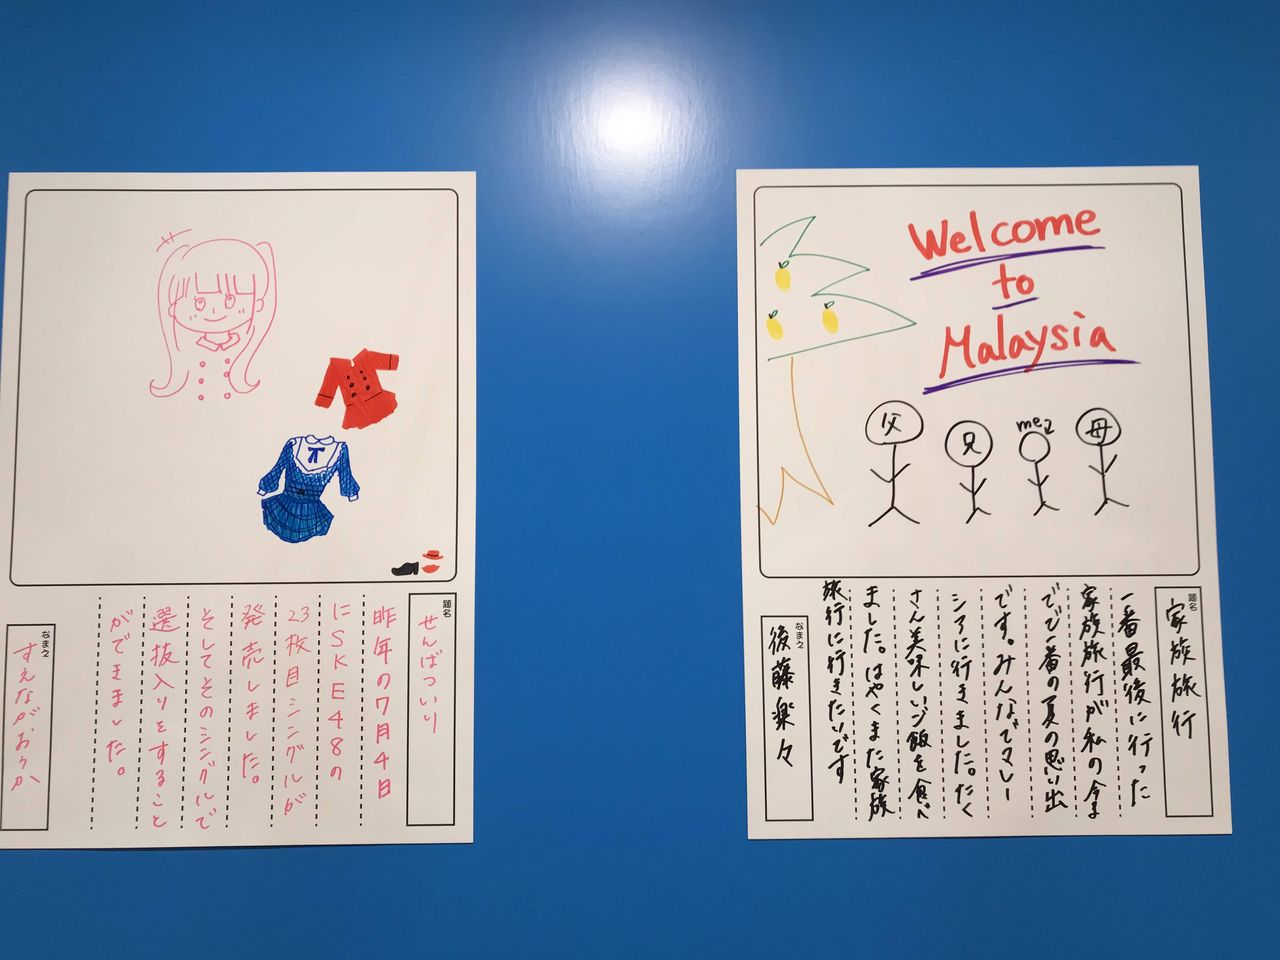 題名
せんばついり
昨年の7月4日
にSKE48の
23枚目シングルが
発売しました。
そしてそのシングルで
選抜入りをすること
ができました。
なまえ
すえながおうか
Welcome
to
Malaysia
父
兄
me
母
題名
家族旅行
一番最後に行った
家族旅行が私の今ま
でで一番の夏の思い出
です。みんなでマレー
シアに行きました。たく
さん美味しいご飯を食べ
ました。はやくまた家族
旅行に行きたいです
なまえ
後藤楽々